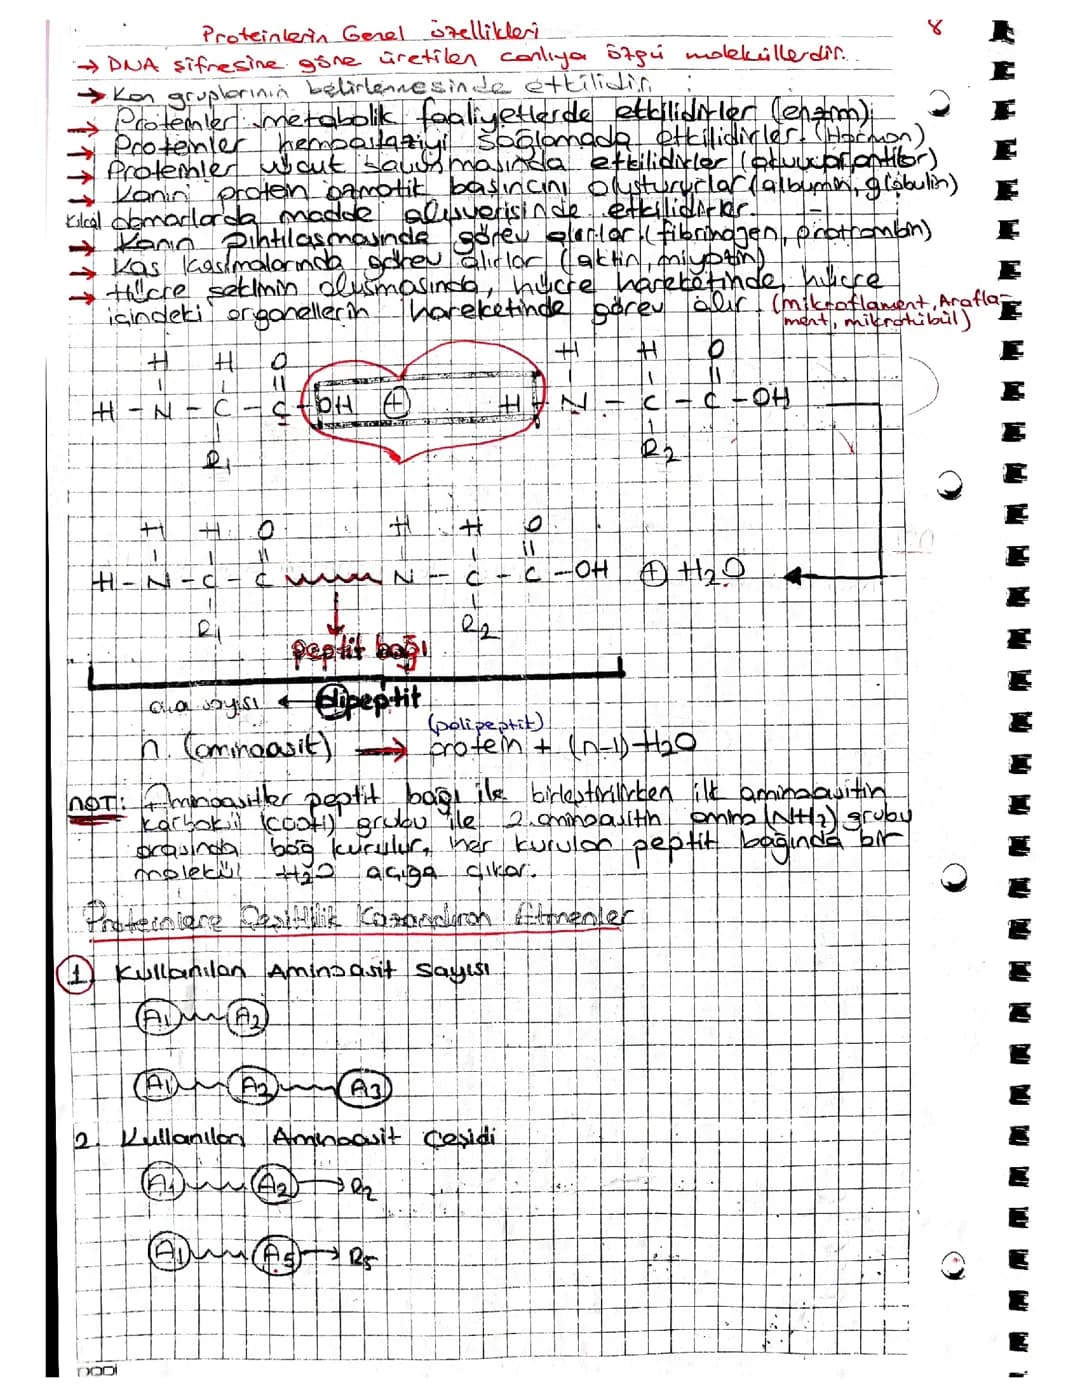 8
Proteinlerin Genel özellikleri
→ DNA şifresine göre üretilen canlıya özgü moleküllerdir.
→ Kan gruplarının belirlenmesinde etkilidir.
→ Proteinler metabolik faaliyetlerde etkilidirler (enzim)
→ Proteinler hemostaziyi sağlamada etkilidirler. (Hormon)
→ Proteinler vücut savunmasında etkilidirler (antikor)
→ Kanın protein ozmotik basıncını oluştururlar (albumin, globulin)
Kılcal damarlarda madde alışverişinde etkilidirler.
→ Kanın pıhtılaşmasında görev alırlar (fibrinogen, protrombin)
→ Kas kasılmalarında görev alırlar (aktin, miyozin)
→ Hücre şeklinin oluşmasında, hücre hareketinde, hücre
içindeki organellerin hareketinde görev alır. (mikroflament, Arafla-
ment, mikrotübül)
H H O H H O
H - N - C - C - OH + H - N - C - C - OH
R1 R2
H H O H H O
H - N - C - C N - C - C - OH + H2O
R1 R2
peptit bağı
a.a sayısı ← Dipeptit
(polipeptit)
n. (aminoasit) → protein + (n-1) H2O
NOT: Aminoasitler peptit bağı ile birleştirilirken ilk aminoasitin
karboksil (COOH) grubu ile 2. aminoasitin amino (NH2) grubu
arasında bağ kurulur, her kurulan peptit bağında bir
molekül H2O açığa çıkar.
Proteinlere Çeşitlilik Kazandıran Etmenler
1 Kullanılan Aminoasit Sayısı
A1 A2
A1 A2 A3
2. Kullanılan Aminoasit Çeşidi
A1 A2 → R2
A1 A5 → R5